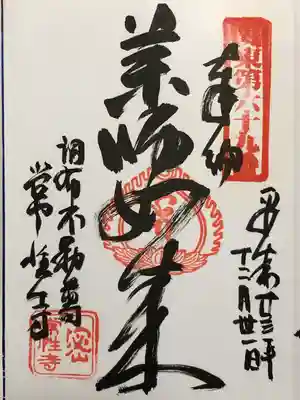 関東第六十九番
奉納
平成廿三年
十二月廿一日
薬師如来
調布不動尊
常性寺
常性寺